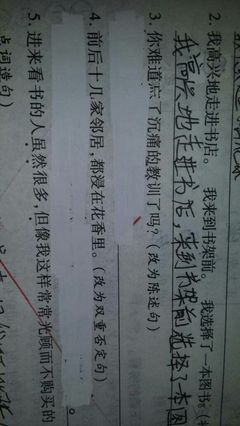 2. 我高兴地走进书店。 我来到书架前。 我选择了一本图书。
我高兴地走进书店,来到书架前选择了一本图
3. 你难道忘了沉痛的教训了吗?(改为陈述句)
4. 前后十几家邻居,都浸在花香里。(改为双重否定句)
。
5. 进来看书的人虽然很多,但像我这样常常光顾而不购买的
点词造句)